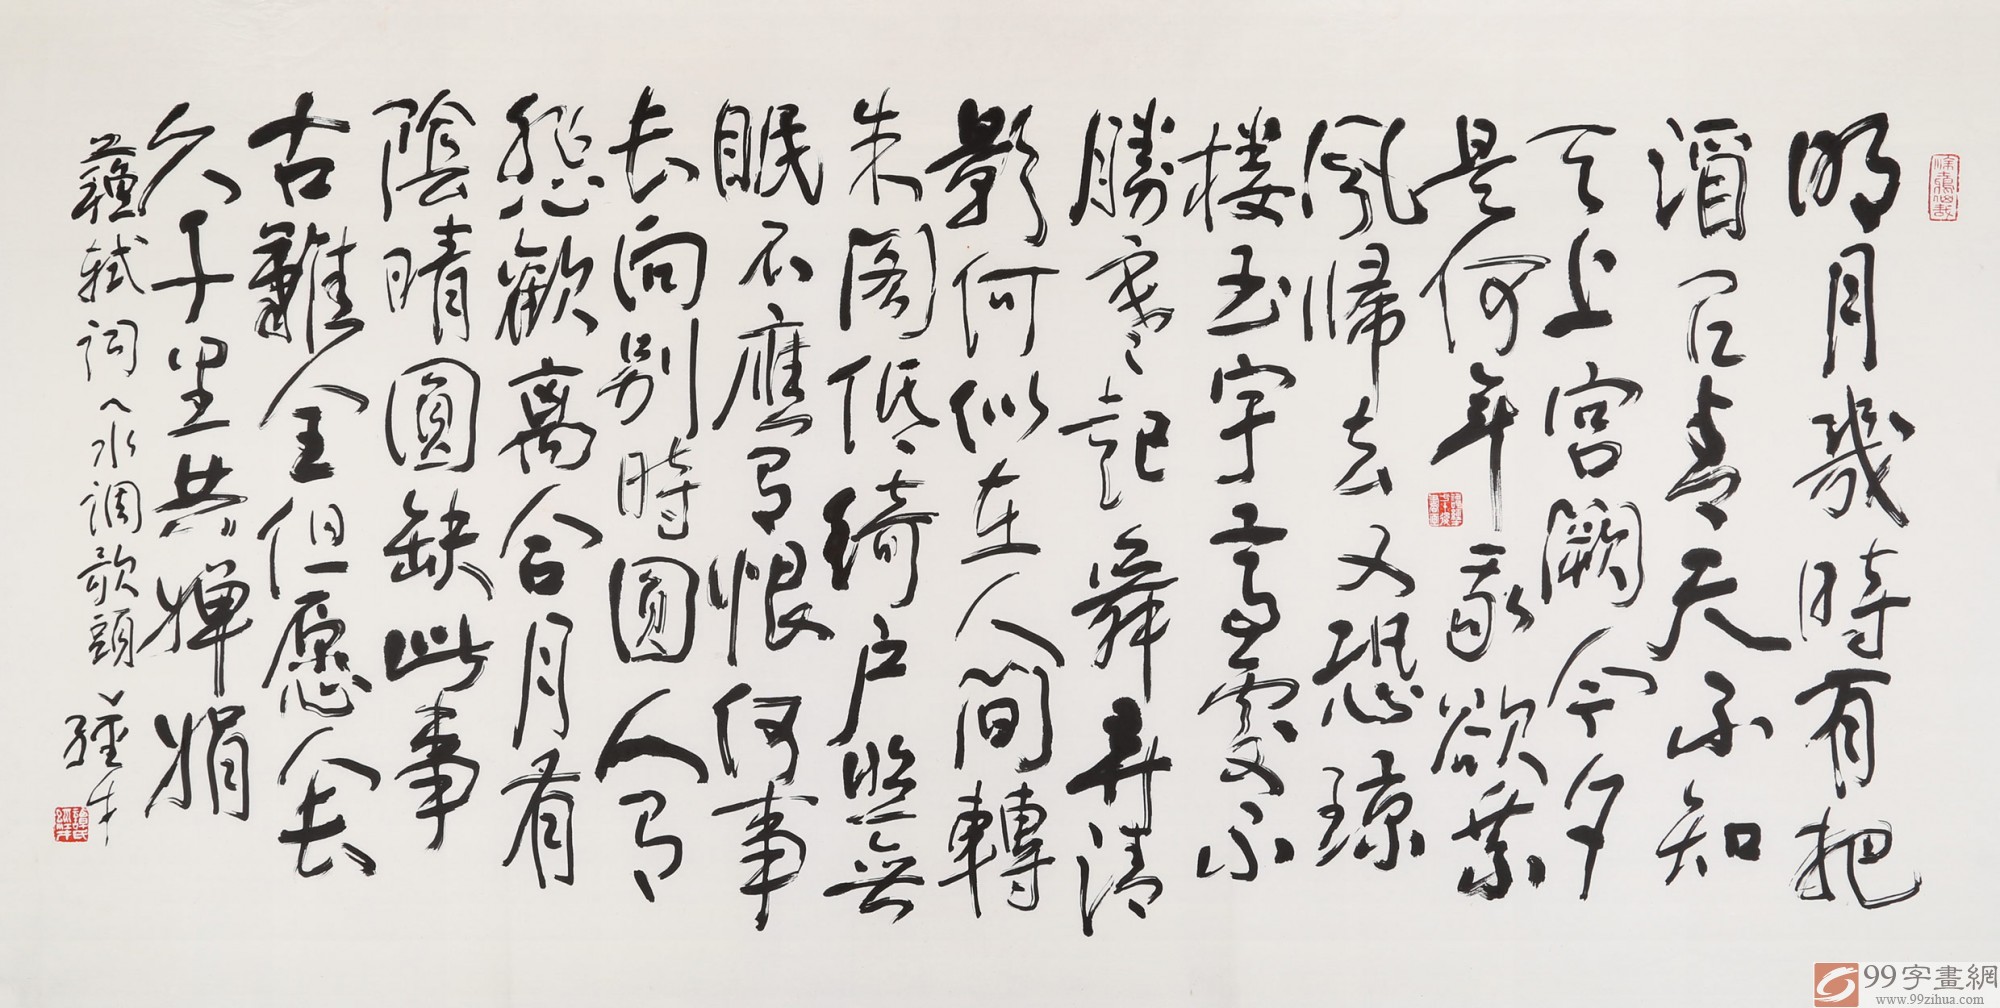 明月幾時有把
酒问青天不知
天上宫闕今夕
是何年我欲乘
風歸去又恐琼
楼玉宇高處不
勝寒起舞弄清
影何似在人間轉
朱阁低綺户照無
眠不應有恨何事
长向别時圓人有
悲歡离合月有
陰晴圓缺此事
古難全但愿人长
久千里共嬋娟
蘇軾词〈水调歌頭〉
99字畫網
www.99zihua.com